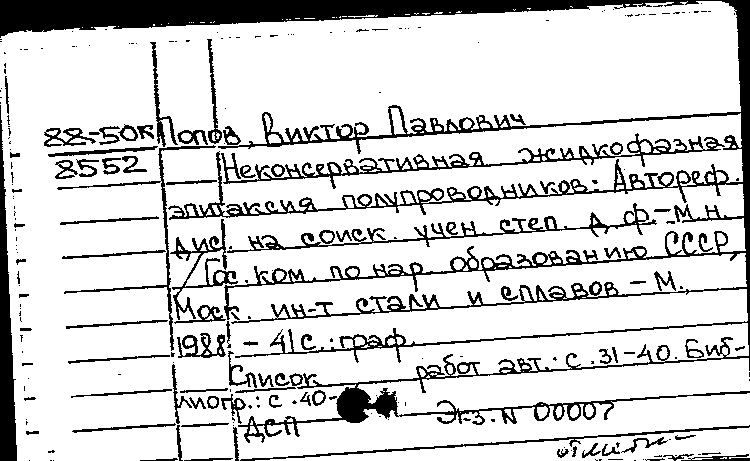 88-50к Попов, Виктор Павлович
8552 Неконсервативная жидкофазная
эпитаксия полупроводников: Автореф.
дис. на соиск. учен. степ. д. ф.-м.н.
/Гос. ком. по нар. образованию СССР,
Моск. ин-т стали и сплавов – М.,
1988 – 41с.: граф.
Список работ авт.: с. 31-40. Биб-
лиогр.: с. 40-41
ДСП Экз. N 00007